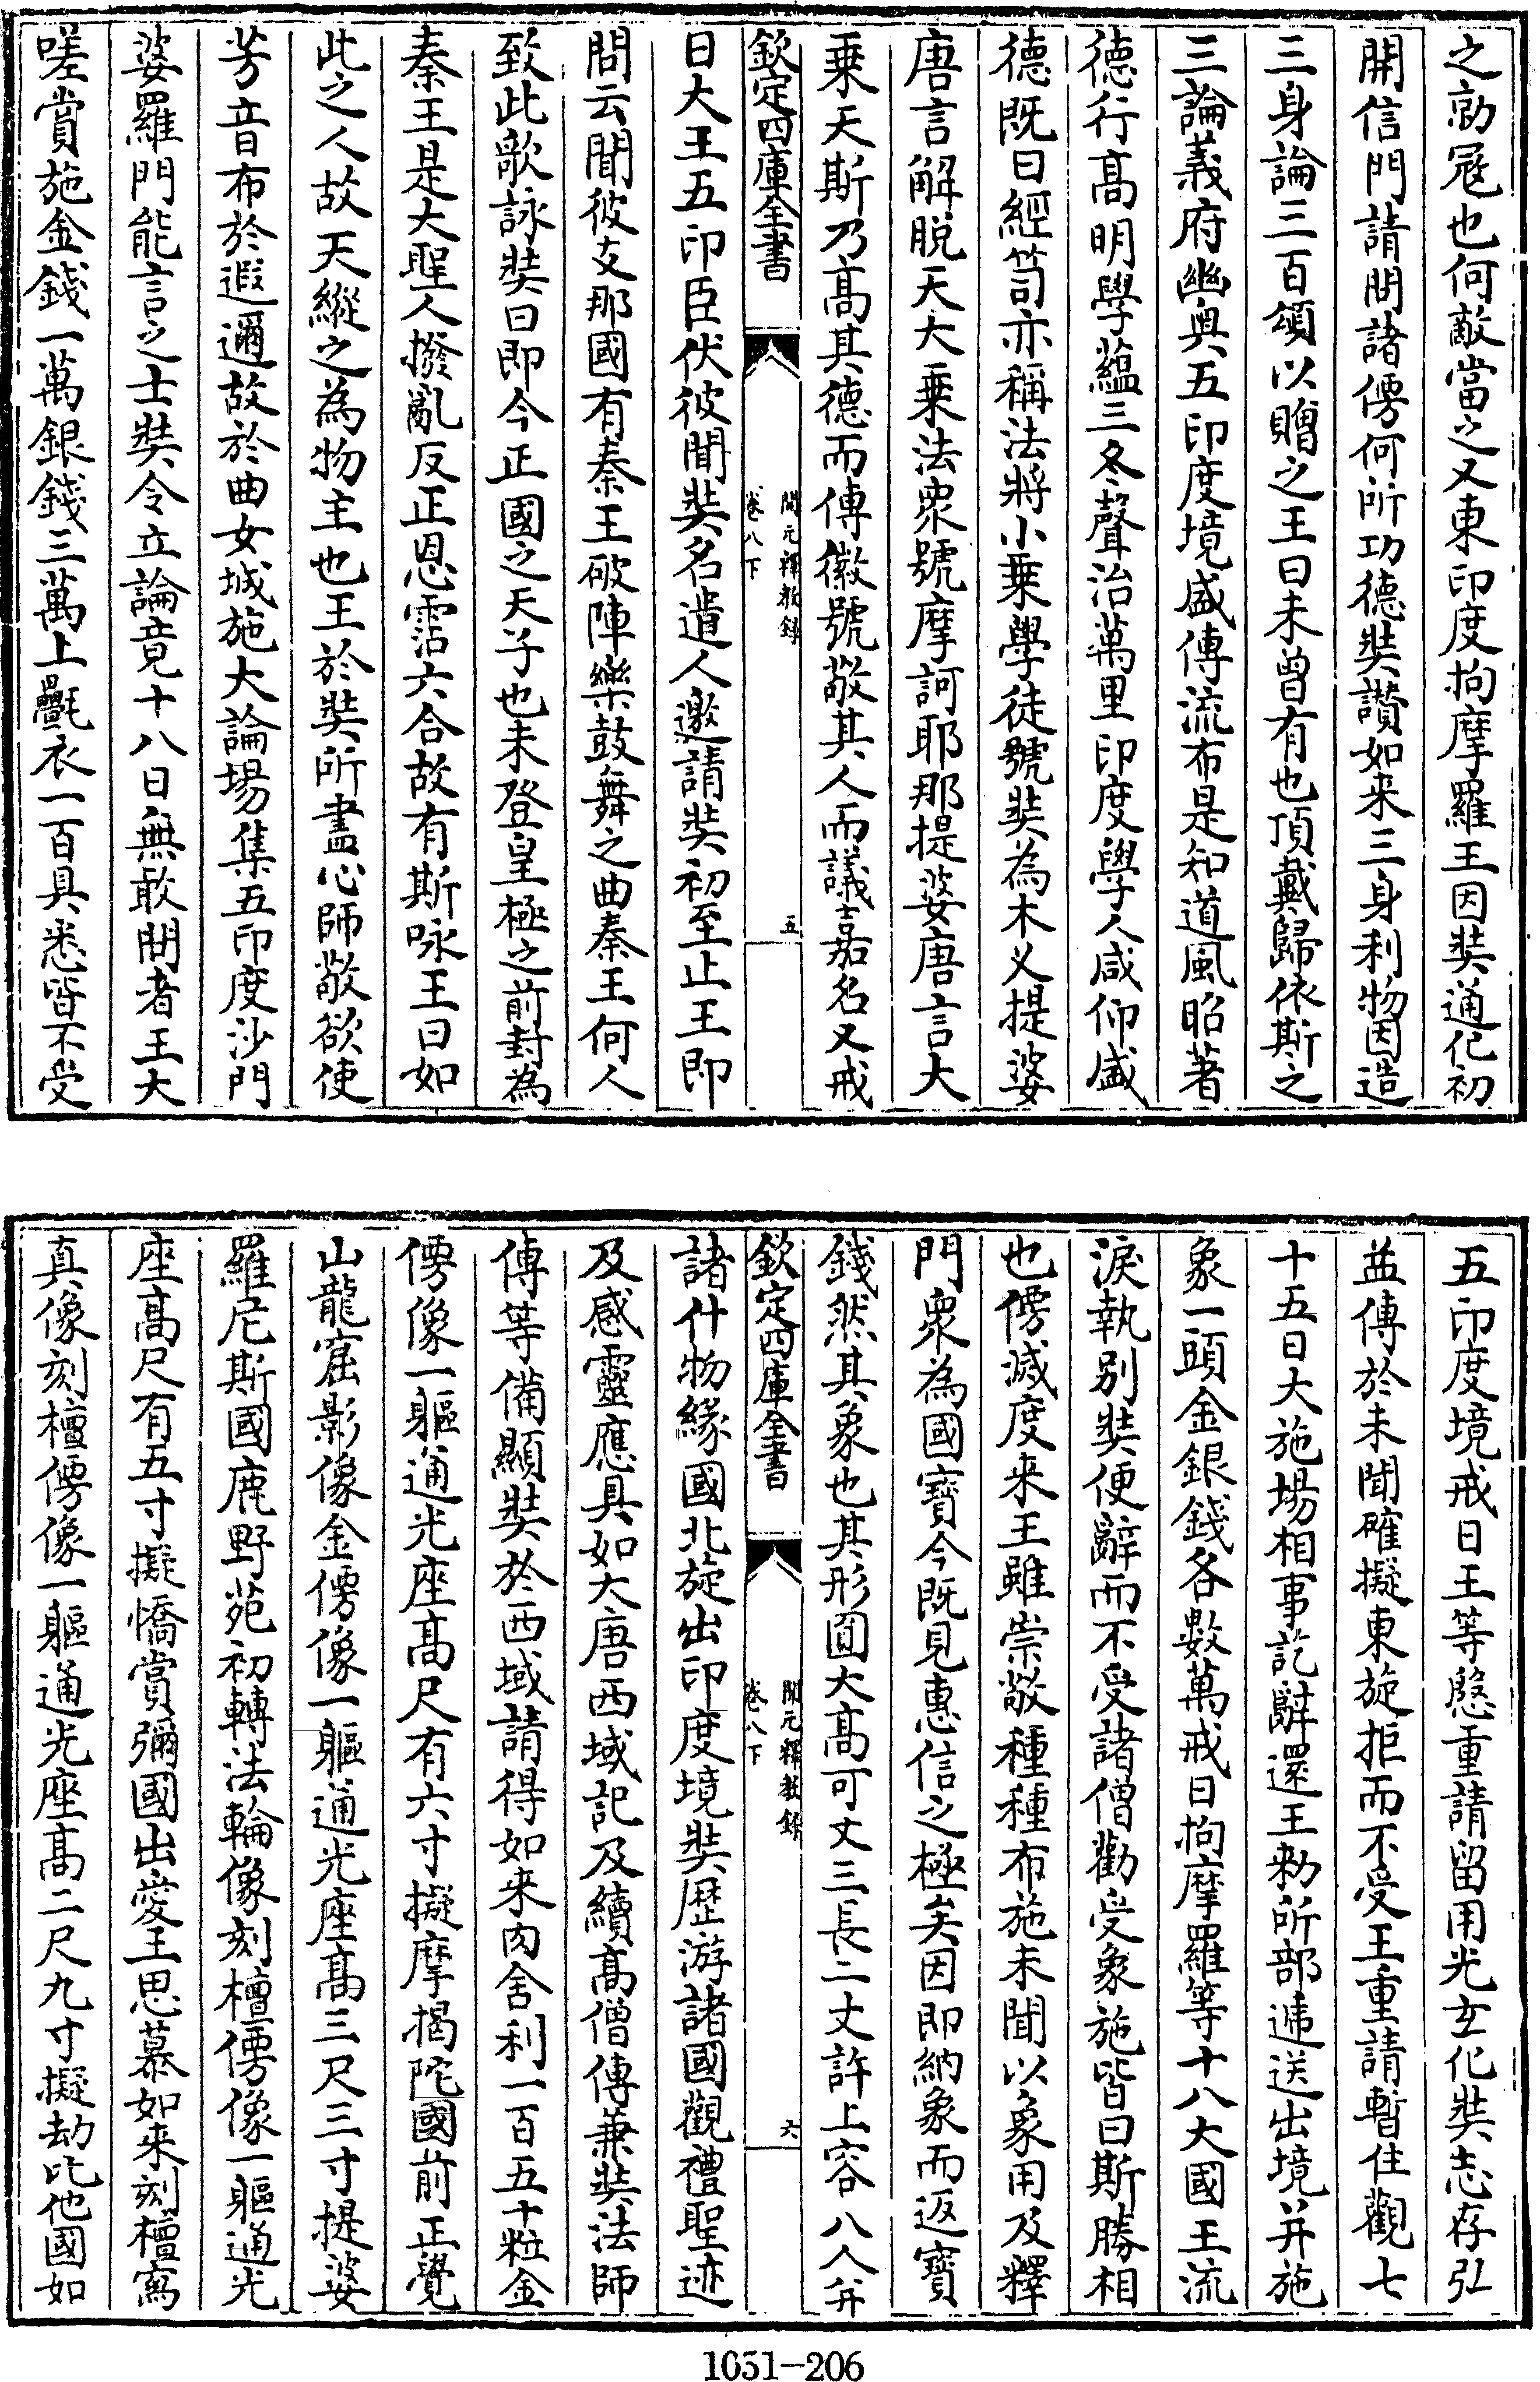 之勍冠也何敵當之又東印度拘摩羅王因奘通化初
開信門請問諸僧何所功德奘讚如来三身利物因造
三身論三百頌以贈之王曰未曾有也頂戴歸依斯之
三論義府幽奥五印度境盛傳流布是知道風昭著
德行髙明學蘊三冬聲治萬里印度學人咸仰盛
德既曰經笥亦稱法將小乗學徒號奘為木义提婆
唐言解脱天大乗法衆號摩訶耶那提婆唐言大
乗天斯乃髙其德而傳徽號敬其人而議嘉名又戒
欽定四庫全書
開元釋教録
卷八下
五
日大王五印臣伏彼聞奘名遣人邀請奘初至止王即
問云聞彼支那國有秦王破陣樂鼓舞之曲秦王何人
致此歌詠奘曰即今正國之天子也未登皇極之前封為
秦王是大聖人撥亂反正恩霑六合故有斯咏王曰如
此之人故天縱之為物主也王於奘所盡心師敬欲使
芳音布於遐邇故於曲女城施大論場集五印度沙門
婆羅門能言之士奘令立論竟十八日無敢問者王大
嗟賞施金錢一萬銀錢三萬上氎衣一百具悉皆不受
五印度境戒日王等慇重請留用光玄化奘志存弘
益傳於未聞確擬東旋拒而不受王重請暫住觀七
十五日大施場相事訖辭還王勑所部遞送出境并施
象一頭金銀錢各數萬戒日拘摩羅等十八大國王流
淚執別奘便辭而不受諸僧勸受象施皆曰斯勝相
也僧滅度来王雖崇敬種種布施未聞以象用及釋
門衆為國寳今既見惠信之極矣因即納象而返寳
錢然其象也其形圓大髙可丈三長二丈許上容八人并
欽定四庫全書
開元釋教録
卷八下
六
諸什物緣國北旋出印度境奘歴游諸國觀禮聖迹
及感靈應具如大唐西域記及續髙僧傳兼奘法師
傳等備顯奘於西域請得如来肉舍利一百五十粒金
僧像一軀通光座髙尺有六寸擬摩揭陀國前正覺
山龍窟影像金僧像一軀通光座髙三尺三寸提婆
羅尼斯國鹿野苑初轉法輪像刻檀僧像一軀通光
座髙尺有五寸擬憍賞彌國出愛王思慕如来刻檀寫
真像刻檀僧像一軀通光座髙二尺九寸擬劫比他國如
1051-206